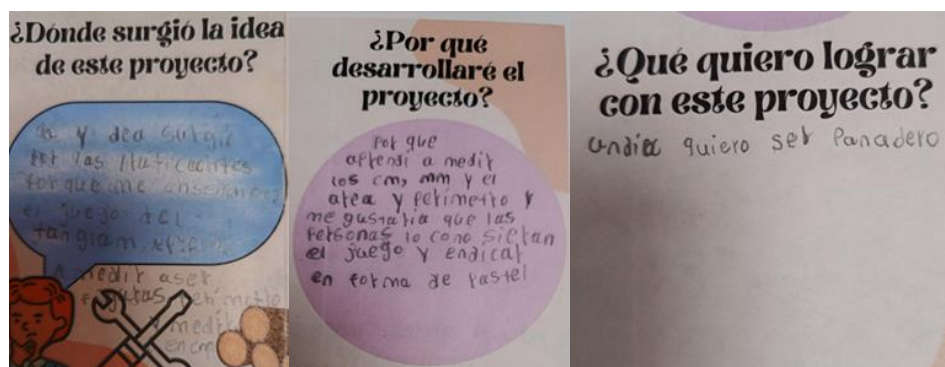 ¿Dónde surgió la idea
de este proyecto?
la y dea surgio
por las Practicantes
porque me enseñaron
el juego del
tangram,
a medir aser
figuras, perimetro
y medir
en cm
¿Por qué
desarrollaré el
proyecto?
Por que
aprendi a medir
los cm, mm y el
area y perimetro y
me gustaria que las
Personas lo cono sieran
el juego y endicar
en forma de pastel
¿Qué quiero lograr
con este proyecto?
undia quiero ser Panadero